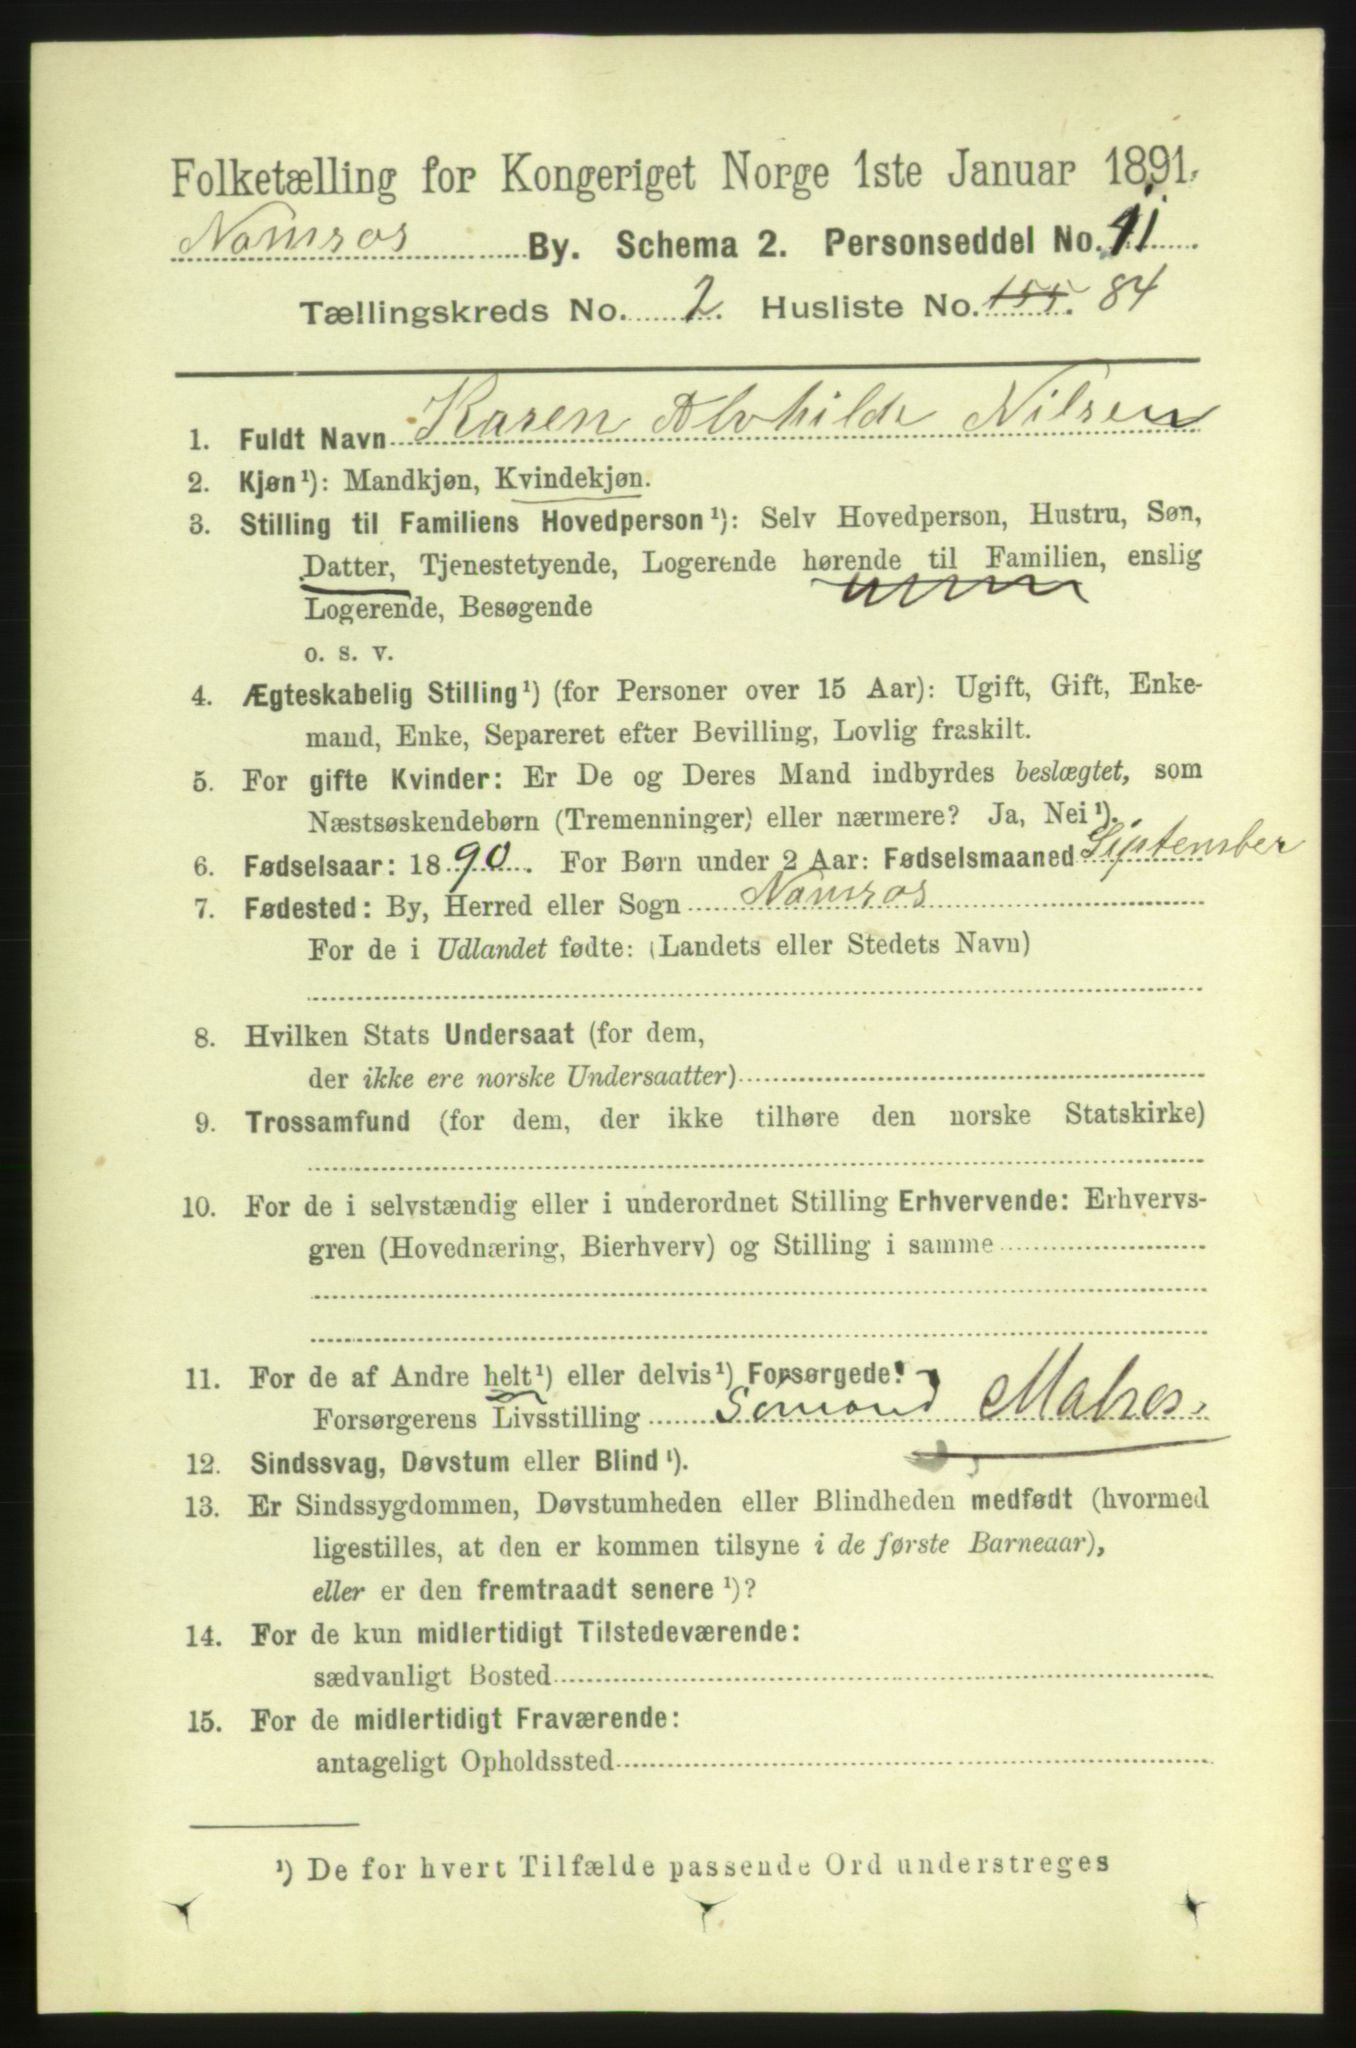 Folketælling for Kongeriget Norge 1ste Januar 1891.
Namsos By. Schema 2. Personseddel No. 11
Tællingskreds No. 2. Husliste No. 155. 84
1. Fuldt Navn Karen Alvhilde Nilsen
2. Kjøn¹): Mandkjøn, Kvindekjøn.
3. Stilling til Familiens Hovedperson¹): Selv Hovedperson, Hustru, Søn,
Datter, Tjenestetyende, Logerende hørende til Familien, enslig
Logerende, Besøgende
o. s. v.
4. Ægteskabelig Stilling¹) (for Personer over 15 Aar): Ugift, Gift, Enke-
mand, Enke, Separeret efter Bevilling, Lovlig fraskilt.
5. For gifte Kvinder: Er De og Deres Mand indbyrdes beslægtet, som
Næstsøskendebørn (Tremenninger) eller nærmere? Ja, Nei¹).
6. Fødselsaar: 1890. For Børn under 2 Aar: Fødselsmaaned September
7. Fødested: By, Herred eller Sogn Namsos
For de i Udlandet fødte: (Landets eller Stedets Navn)
8. Hvilken Stats Undersaat (for dem,
der ikke ere norske Undersaatter)
9. Trossamfund (for dem, der ikke tilhøre den norske Statskirke)
10. For de i selvstændig eller i underordnet Stilling Erhvervende: Erhvervs-
gren (Hovednæring, Bierhverv) og Stilling i samme
11. For de af Andre helt¹) eller delvis¹) Forsørgede:
Forsørgerens Livsstilling Sømand Matros.
12. Sindssvag, Døvstum eller Blind¹).
13. Er Sindssygdommen, Døvstumheden eller Blindheden medfødt (hvormed
ligestilles, at den er kommen tilsyne i de første Barneaar),
eller er den fremtraadt senere¹)?
14. For de kun midlertidigt Tilstedeværende:
sædvanligt Bosted
15. For de midlertidigt Fraværende:
antageligt Opholdssted
¹) De for hvert Tilfælde passende Ord understreges